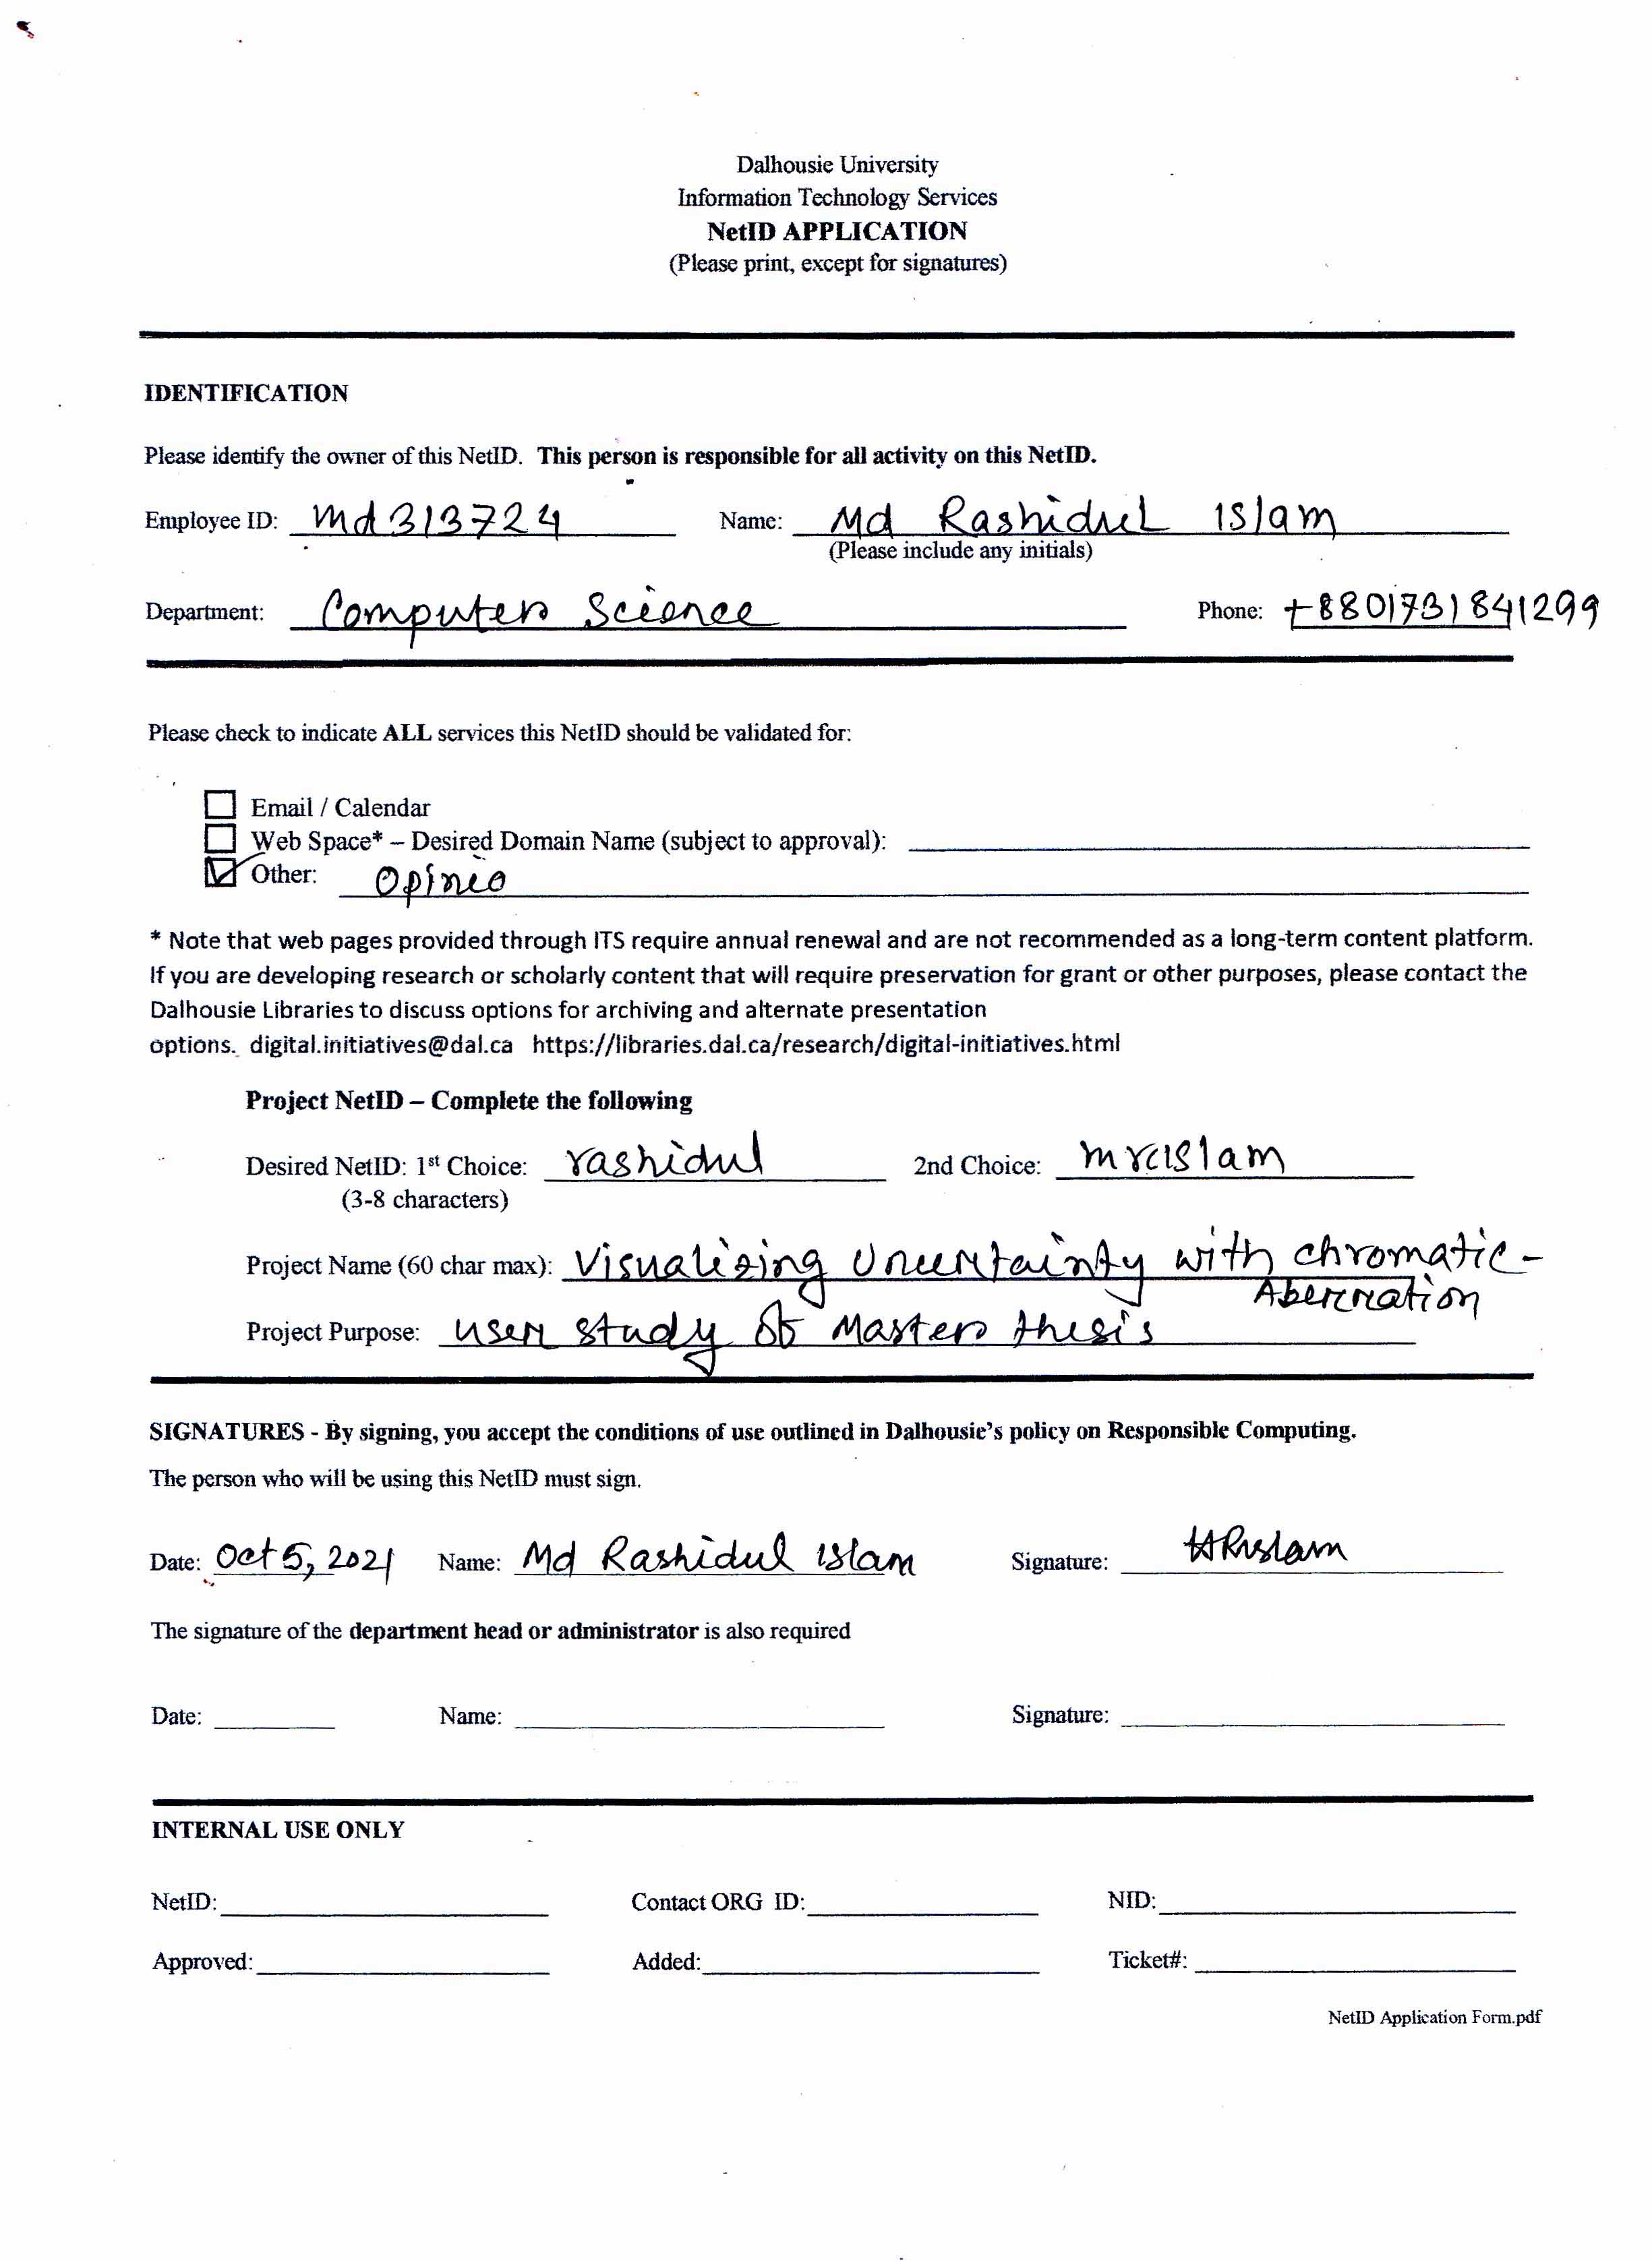 Dalhousie University
Information Technology Services
NetID APPLICATION
(Please print, except for signatures)
IDENTIFICATION
Please identify the owner of this NetID. This person is responsible for all activity on this NetID.
Employee ID: md313724 Name: Md Rashidul Islam
(Please include any initials)
Department: Computer Science Phone: +8801731841299
Please check to indicate ALL services this NetID should be validated for:
Email / Calendar
Web Space* – Desired Domain Name (subject to approval):
Other: Opinio
* Note that web pages provided through ITS require annual renewal and are not recommended as a long-term content platform.
If you are developing research or scholarly content that will require preservation for grant or other purposes, please contact the
Dalhousie Libraries to discuss options for archiving and alternate presentation
options. digital.initiatives@dal.ca https://libraries.dal.ca/research/digital-initiatives.html
Project NetID – Complete the following
Desired NetID: 1st Choice: rashidul 2nd Choice:
(3-8 characters)
Project Name (60 char max): Visualizing Uncertainty with chromatic-
Aberration
Project Purpose: user study of Master thesis
SIGNATURES - By signing, you accept the conditions of use outlined in Dalhousie's policy on Responsible Computing.
The person who will be using this NetID must sign.
Date: Oct 5, 2021 Name: Md Rashidul Islam Signature:
The signature of the department head or administrator is also required
Date: Name: Signature:
INTERNAL USE ONLY
NetID: Contact ORG ID: NID:
Approved: Added: Ticket#:
NetID Application Form.pdf